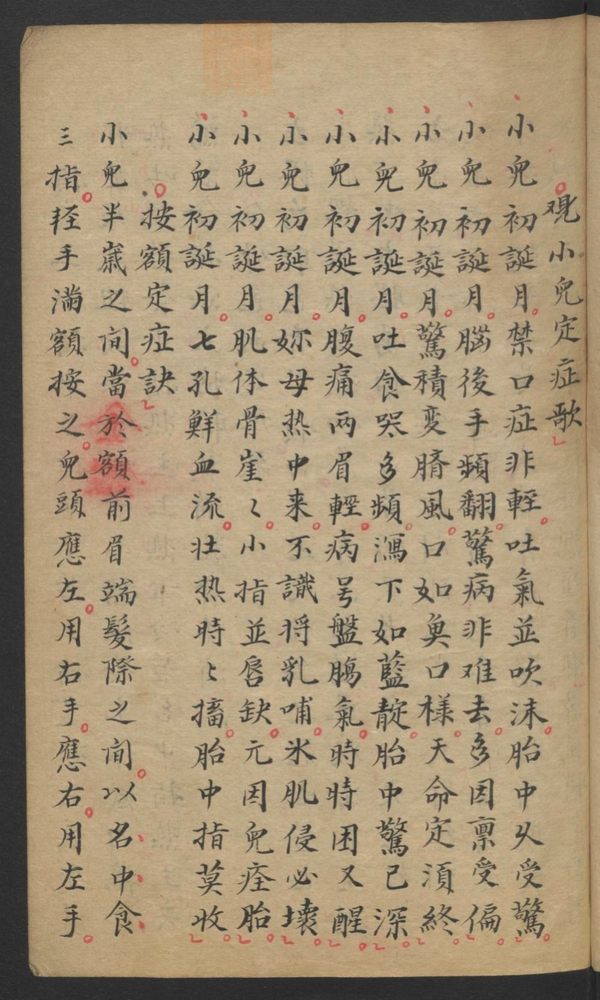 覌小兒定症歌
小兒初誕月禁口症非輕吐氣並吹沫胎中久受驚
小兒初誕月腦後手頻翻驚病非难去多因禀受偏
小兒初誕月驚積変臍風口如魚口様天命定須終
小兒初誕月吐食哭多頻瀉下如藍靛胎中驚已深
小兒初誕月腹痛两眉輕病号盤腸氣時時困又醒
小兒初誕月妳母热中来不識捋乳哺氷肌侵必壊
小兒初誕月肌体骨崖〻小指並唇缺元因兒痊胎
小兒初誕月七孔鮮血流壮热時〻搐胎中指莫收
按額定症訣
小兒半嵗之间當於額前眉端髮際之间以名中食
三指軽手满額按之兒頭應左用右手應右用左手